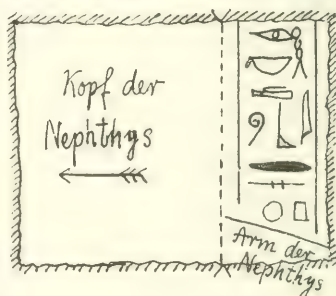 Kopf der
Nephthys
Arm der
Nephthys